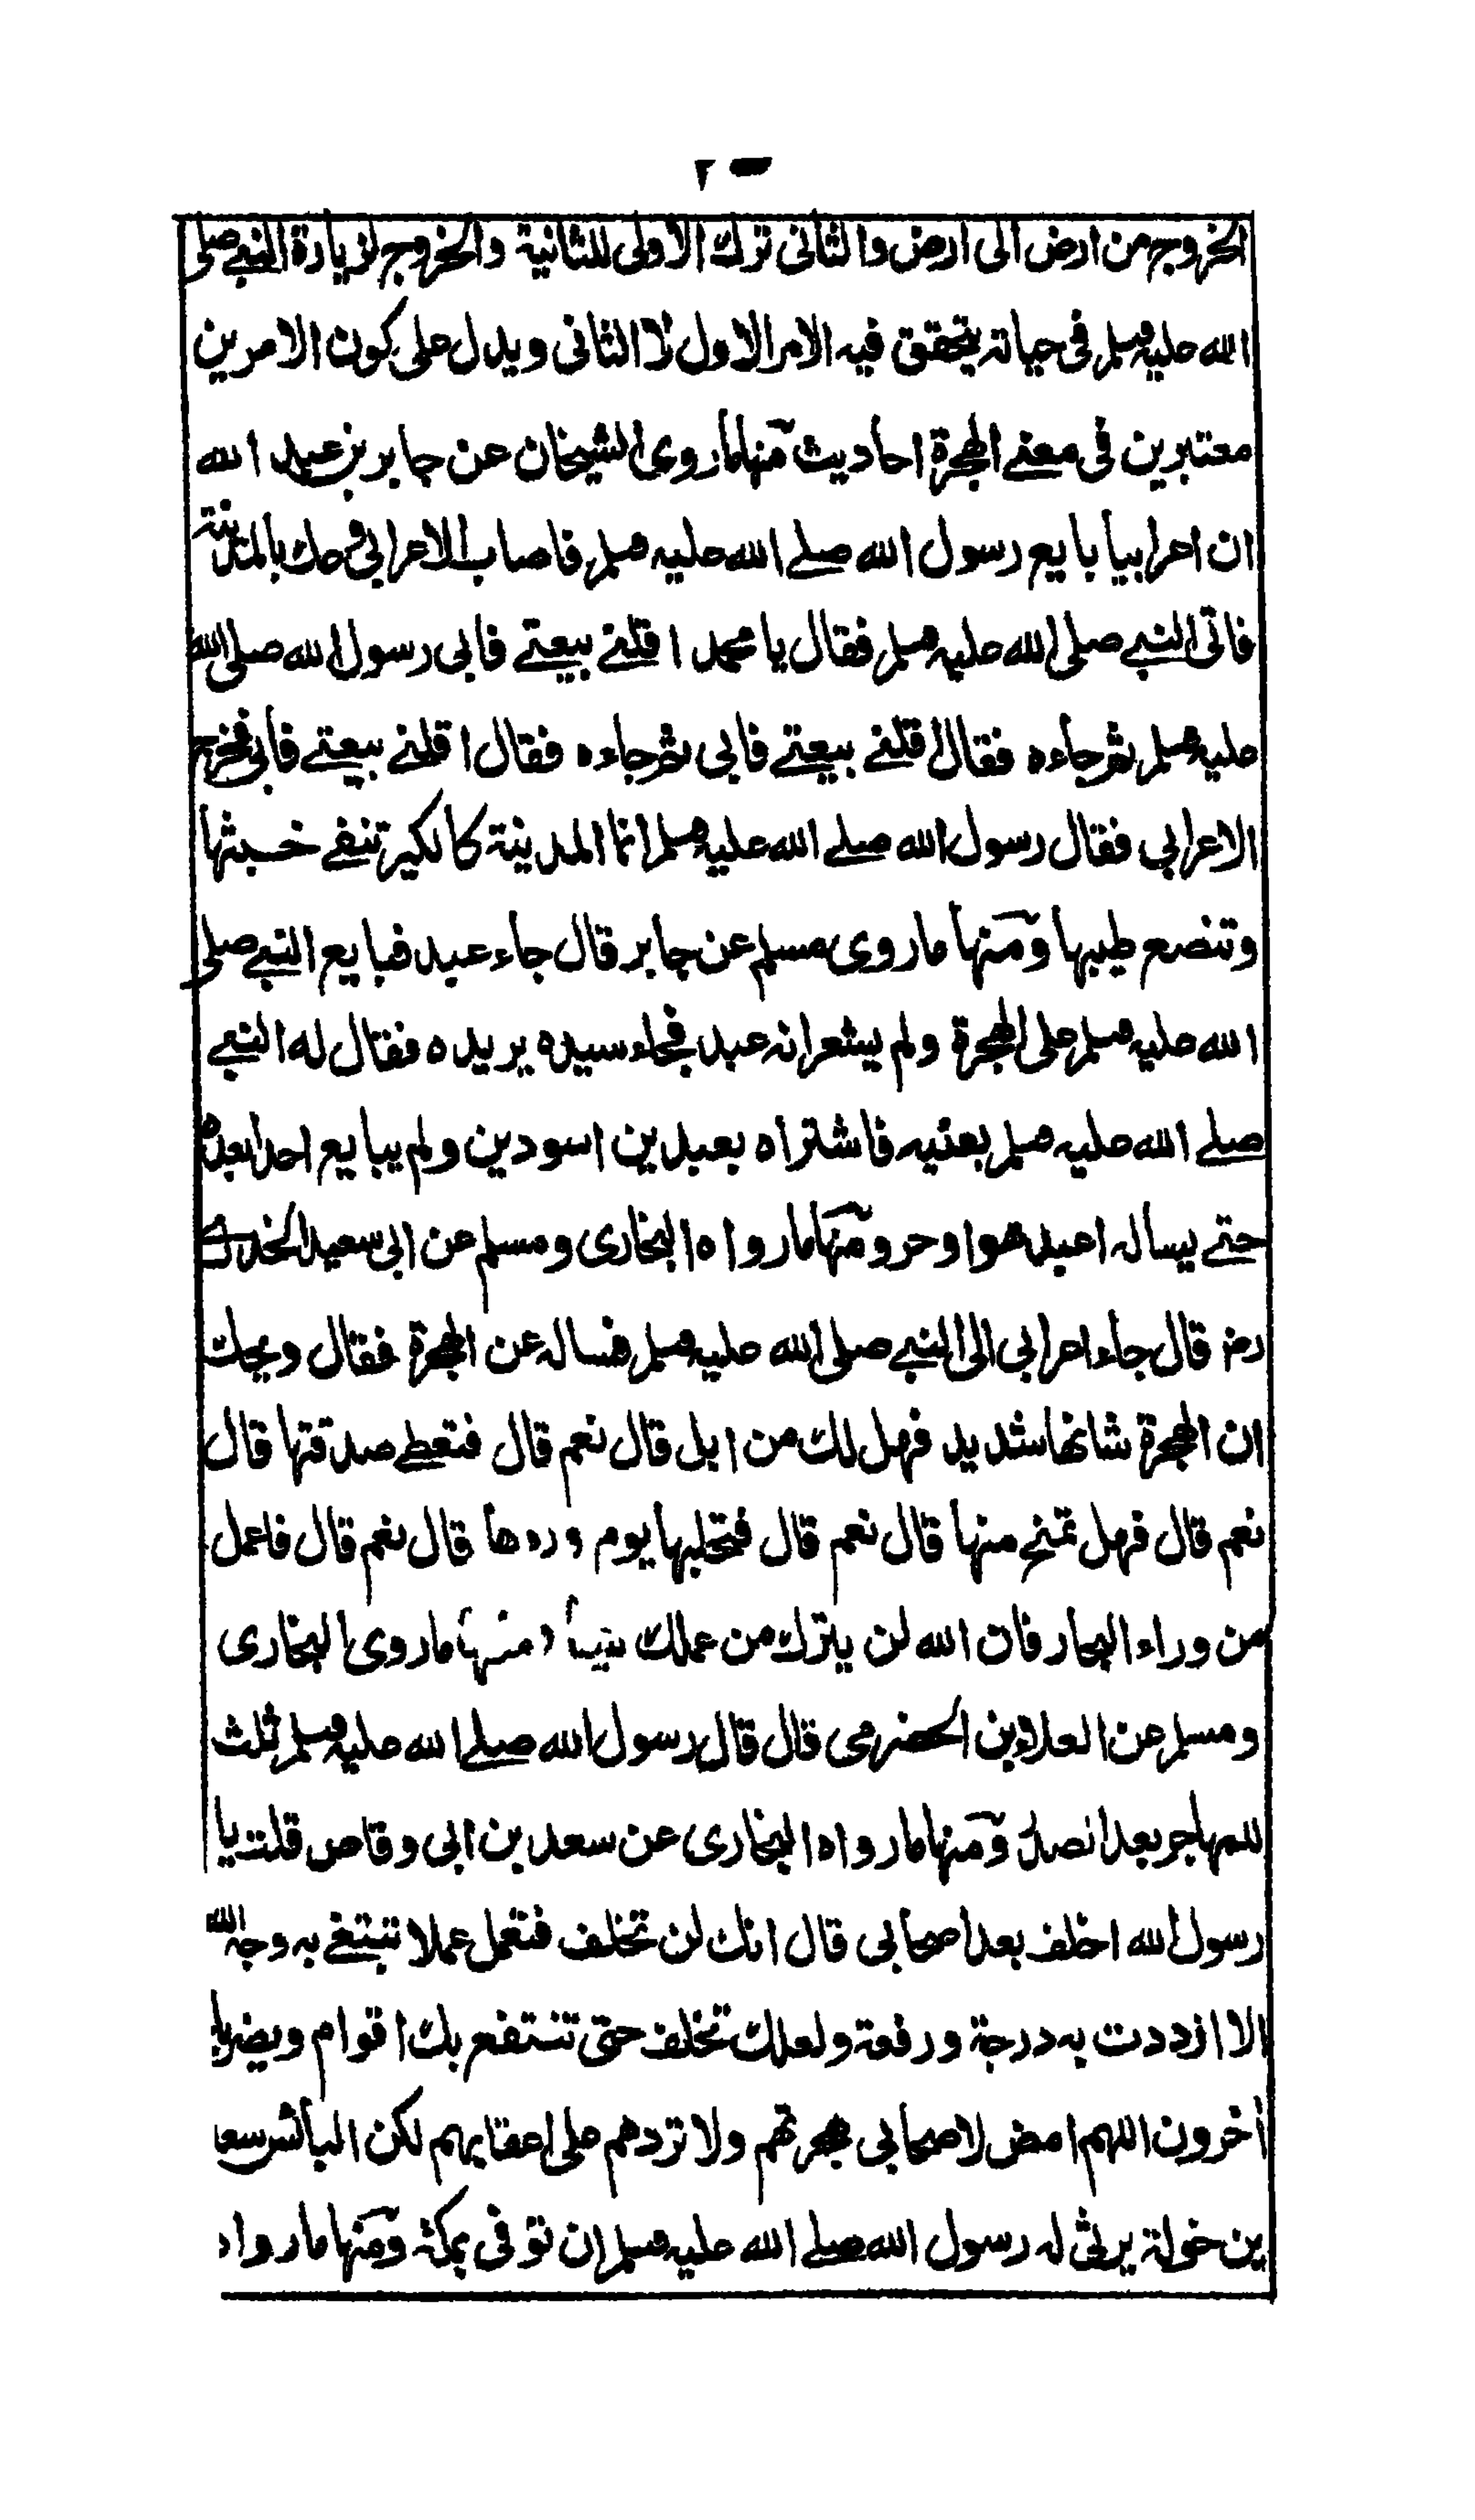 ٢٠
الخروج من ارض الى ارض والثانى ترك الاولى للثانية والخروج لزيارة النبي صلى
الله عليه وسلم فى حياته يتحقق فيه الامر الاول لا الثانى ويدل على كون الامرين
معتبرين فى معنے الهجرة احاديث منها ما روى الشيخان عن جابر بن عبد الله
ان اعرابيا بايع رسول الله صلے الله عليه وسلم فاصاب الاعرابى وعك بالمدينة
فاتى النبے صلى الله عليه وسلم فقال يا محمد اقلنے بيعتے فابى رسول الله صلى الله
عليه وسلم ثم جاءه فقال اقلنے بيعتے فابى ثم جاءه فقال اقلنے بيعتے فابى فخرج
الاعرابي فقال رسول الله صلے الله عليه وسلم انما المدينة كالكير تنفے خبثها
وتنصع طيبها ومنها ما روى مسلم عن جابر قال جاء عبد فبايع النبے صلى
الله عليه وسلم على الهجرة ولم يشعر انه عبد فجاء سيده يريده فقال له النبے
صلے الله عليه وسلم بعنيه فاشتراه بعبدين اسودين ولم يبايع احدا بعده
حتے يساله اعبد هو او حر ومنها ما رواه البخارى ومسلم عن ابى سعيد الخدرے
رضـ قال جاء اعرابي الى النبے صلى الله عليه وسلم فساله عن الهجرة فقال ويحك
ان الهجرة شانها شديد فهل لك من ابل قال نعم قال فتعطے صدقتها قال
نعم قال فهل تمنح منها قال نعم قال فتحلبها يوم وردها قال نعم قال فاعمل
من وراء البحار فان الله لن يترك من عملك شيئا ومنها ما روى البخارى
ومسلم عن العلاء بن الحضرمى قال قال رسول الله صلے الله عليه وسلم ثلث
للمهاجر بعد الصدر ومنها ما رواه البخارى عن سعد بن ابى وقاص قلت يا
رسول الله اخلف بعد اصحابى قال انك لن تخلف فتعمل عملا تبتغے به وجه الله
الا ازددت به درجة ورفعة ولعلك تخلف حتى تنتفع بك اقوام ويضر بك
اخرون اللهم امض لاصحابى هجرتهم ولا تردهم على اعقابهم لكن البائس سعد
بن خولة يرثى له رسول الله صلے الله عليه وسلم ان توفى بمكة ومنها ما رواه